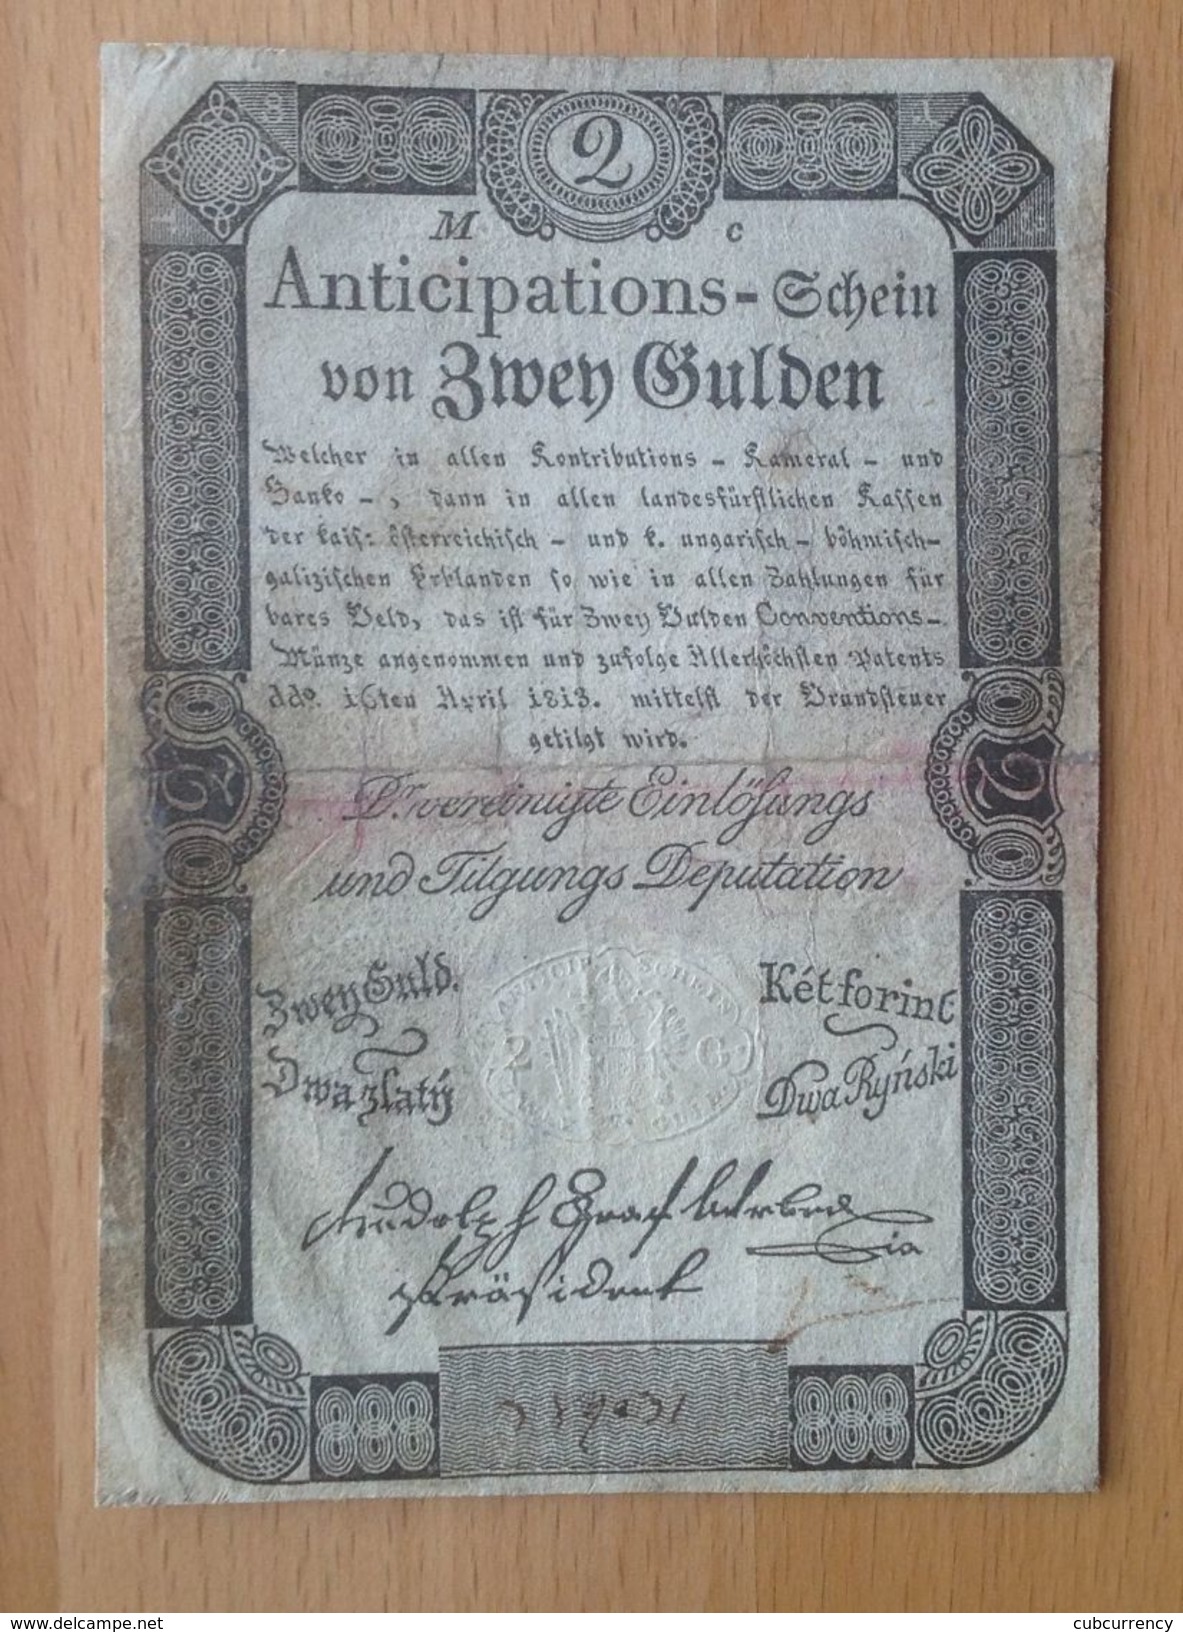 2
M c
Anticipations-Schein
von Zwey Gulden
Welcher in allen Kontributions - Kameral - und
Banko -, dann in allen landesfürstlichen Kassen
der kais: österreichisch - und k. ungarisch - böhmisch-
galizischen Erblanden so wie in allen Zahlungen für
bares Geld, das ist für Zwey Gulden Conventions-
Münze angenommen und zufolge Allerhöchsten Patents
ddo. 16ten April 1813. mittelst der Grundsteuer
getilgt wird.
2 2
Dr. vereinigte Einlösungs
und Tilgungs Deputation
Zwey Guld.
Dwa zlatý
ANTICIP. SCHEIN
2 G.
Két forint
Dwa Ryński
Rudolph Graf
Präsident
http://www.delcampe.net
cubcurrency